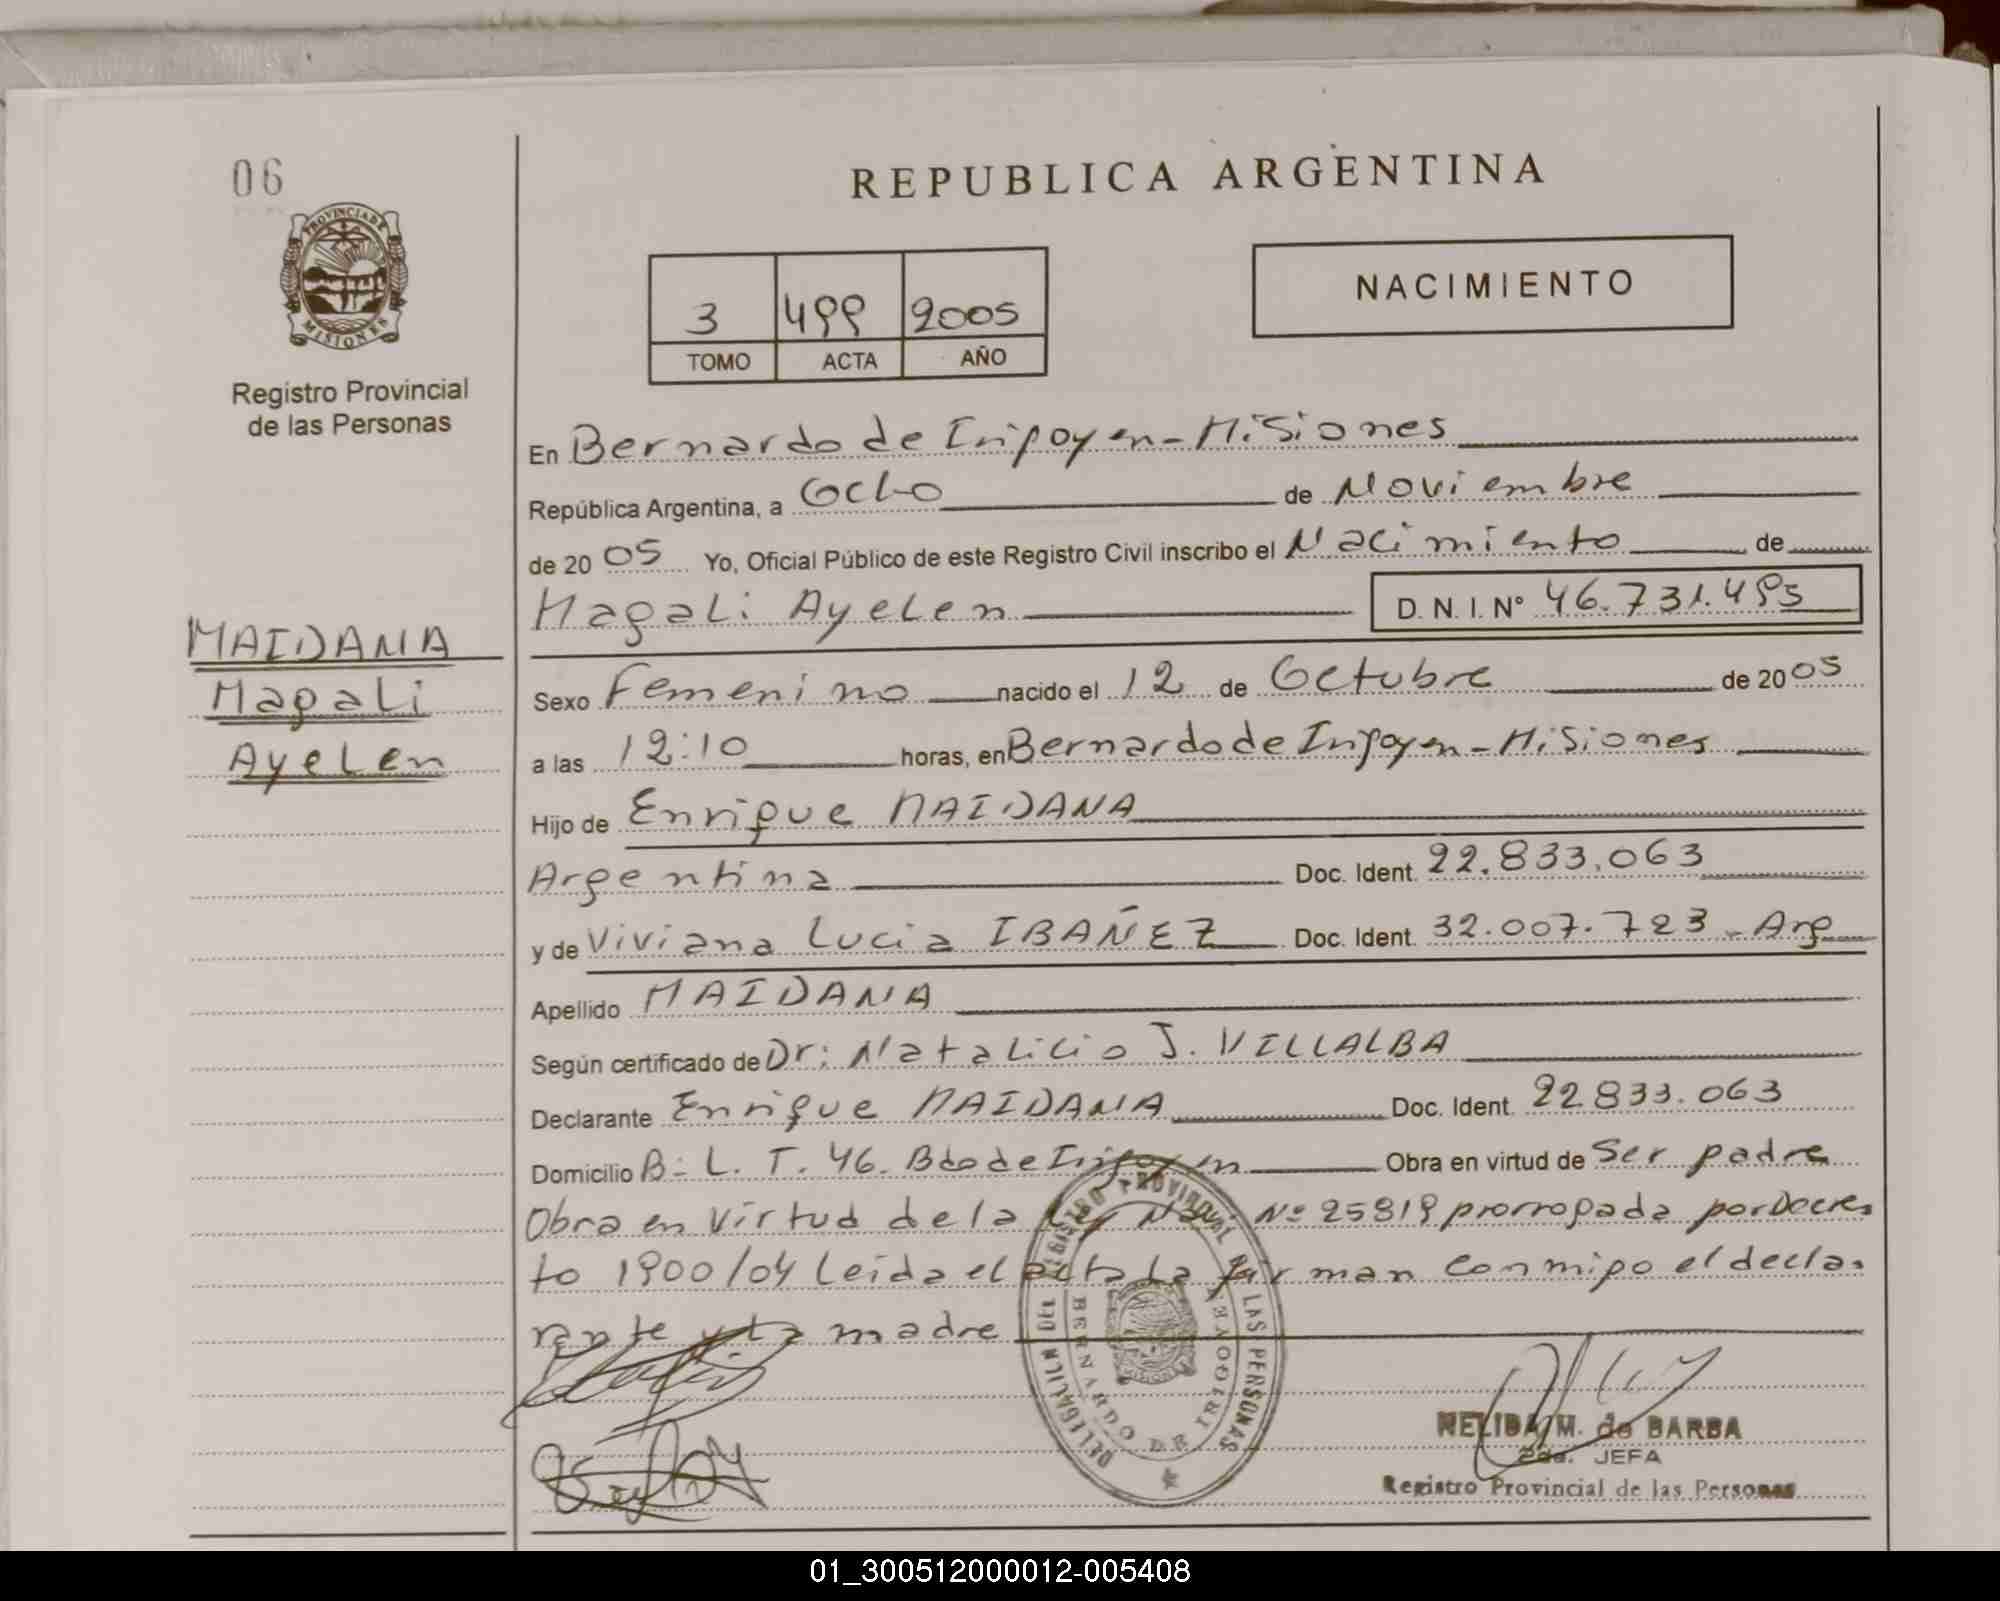 06
REPUBLICA ARGENTINA
PROVINCIA DE
MISIONES
Registro Provincial
de las Personas
3 499 2005
TOMO ACTA AÑO
NACIMIENTO
En Bernardo de Irigoyen - Misiones
República Argentina, a Ocho de Noviembre
de 2005 Yo, Oficial Público de este Registro Civil inscribo el Nacimiento de
Magali Ayelen D. N. I. Nº 46.731.495
MAIDANA
Magali
Ayelen
Sexo Femenino nacido el 12 de Octubre de 2005
a las 12:10 horas, en Bernardo de Irigoyen - Misiones
Hijo de Enrique MAIDANA
Argentina Doc. Ident. 22.833.063
y de Viviana Lucia IBAÑEZ Doc. Ident. 32.007.723 - Arg
Apellido MAIDANA
Según certificado de Dr: Natalicio J. VILLALBA
Declarante Enrique MAIDANA Doc. Ident. 22.833.063
Domicilio B: L. T. 46. Bdo de Irigoyen Obra en virtud de Ser padre
Obra en Virtud de la Ley Nac Nº 25819 prorrogada por Decre
to 1900/04 Leida el acta la firman conmigo el decla
rante y la madre
DELEGACION DEL REGISTRO PROVINCIAL DE LAS PERSONAS
BERNARDO DE IRIGOYEN
MISIONES
NELIDA M. de BARBA
2da. JEFA
Registro Provincial de las Personas
01_300512000012-005408